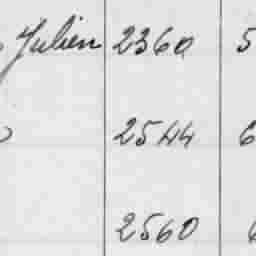 Julien 2360 5
2544 6
2560